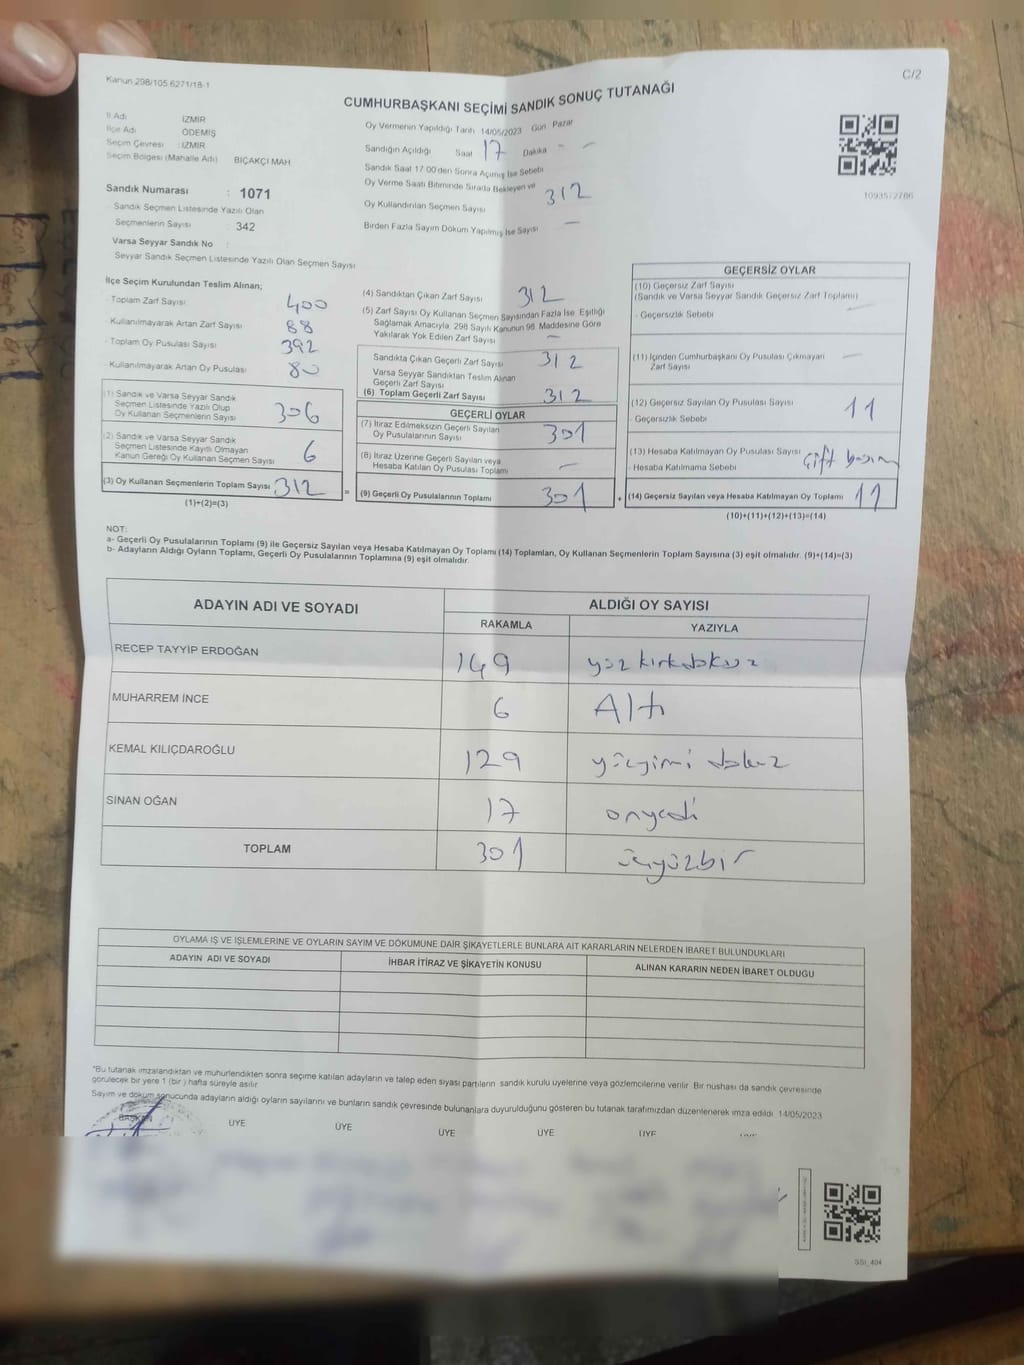 Kanun 298/105 6271/18-1
C/2
CUMHURBAŞKANI SEÇİMİ SANDIK SONUÇ TUTANAĞI
İl Adı İZMİR
İlçe Adı ÖDEMİŞ
Seçim Çevresi : İZMİR
Seçim Bölgesi (Mahalle Adı) BIÇAKÇI MAH
Sandık Numarası : 1071
Sandık Seçmen Listesinde Yazılı Olan
Seçmenlerin Sayısı : 342
Varsa Seyyar Sandık No :
Seyyar Sandık Seçmen Listesinde Yazılı Olan Seçmen Sayısı
Oy Vermenin Yapıldığı Tarih 14/05/2023 Gün Pazar
Sandığın Açıldığı Saat 17 Dakika - -
Sandık Saat 17 00'den Sonra Açılmış İse Sebebi
Oy Verme Saati Bitiminde Sırada Bekleyen ve
Oy Kullandırılan Seçmen Sayısı 312
Birden Fazla Sayım Döküm Yapılmış İse Sayısı —
1093572786
İlçe Seçim Kurulundan Teslim Alınan;
Toplam Zarf Sayısı 400
Kullanılmayarak Artan Zarf Sayısı 88
Toplam Oy Pusulası Sayısı 392
Kullanılmayarak Artan Oy Pusulası 80
(1) Sandık ve Varsa Seyyar Sandık
Seçmen Listesinde Yazılı Olup
Oy Kullanan Seçmenlerin Sayısı 306
(2) Sandık ve Varsa Seyyar Sandık
Seçmen Listesinde Kayıtlı Olmayan
Kanun Gereği Oy Kullanan Seçmen Sayısı 6
(3) Oy Kullanan Seçmenlerin Toplam Sayısı 312
(1)+(2)=(3)
(4) Sandıktan Çıkan Zarf Sayısı 312
(5) Zarf Sayısı Oy Kullanan Seçmen Sayısından Fazla İse Eşitliği
Sağlamak Amacıyla, 298 Sayılı Kanunun 98 Maddesine Göre
Yakılarak Yok Edilen Zarf Sayısı —
Sandıkta Çıkan Geçerli Zarf Sayısı 312
Varsa Seyyar Sandıktan Teslim Alınan
Geçerli Zarf Sayısı
(6) Toplam Geçerli Zarf Sayısı 312
GEÇERLİ OYLAR
(7) İtiraz Edilmeksizin Geçerli Sayılan
Oy Pusulalarının Sayısı 301
(8) İtiraz Üzerine Geçerli Sayılan veya
Hesaba Katılan Oy Pusulası Toplamı —
= (9) Geçerli Oy Pusulalarının Toplamı 301 +
GEÇERSİZ OYLAR
(10) Geçersiz Zarf Sayısı
(Sandık ve Varsa Seyyar Sandık Geçersiz Zarf Toplamı) —
- Geçersizlik Sebebi
(11) İçinden Cumhurbaşkanı Oy Pusulası Çıkmayan
Zarf Sayısı —
(12) Geçersiz Sayılan Oy Pusulası Sayısı 11
- Geçersizlik Sebebi
(13) Hesaba Katılmayan Oy Pusulası Sayısı çift basım
- Hesaba Katılmama Sebebi
(14) Geçersiz Sayılan veya Hesaba Katılmayan Oy Toplamı 11
(10)+(11)+(12)+(13)=(14)
NOT:
a- Geçerli Oy Pusulalarının Toplamı (9) ile Geçersiz Sayılan veya Hesaba Katılmayan Oy Toplamı (14) Toplamları, Oy Kullanan Seçmenlerin Toplam Sayısına (3) eşit olmalıdır. (9)+(14)=(3)
b- Adayların Aldığı Oyların Toplamı, Geçerli Oy Pusulalarının Toplamına (9) eşit olmalıdır.
ADAYIN ADI VE SOYADI ALDIĞI OY SAYISI
RAKAMLA YAZIYLA
RECEP TAYYİP ERDOĞAN 149 yüz kırkdokuz
MUHARREM İNCE 6 Altı
KEMAL KILIÇDAROĞLU 129
SİNAN OĞAN 17 onyedi
TOPLAM 301 üçyüzbir
OYLAMA İŞ VE İŞLEMLERİNE VE OYLARIN SAYIM VE DÖKÜMÜNE DAİR ŞİKAYETLERLE BUNLARA AİT KARARLARIN NELERDEN İBARET BULUNDUKLARI
ADAYIN ADI VE SOYADI İHBAR İTİRAZ VE ŞİKAYETİN KONUSU ALINAN KARARIN NEDEN İBARET OLDUĞU
*Bu tutanak imzalandıktan ve mühürlendikten sonra seçime katılan adayların ve talep eden siyasi partilerin sandık kurulu üyelerine veya gözlemcilerine verilir. Bir nüshası da sandık çevresinde
görülecek bir yere 1 (bir) hafta süreyle asılır
Sayım ve döküm sonucunda adayların aldığı oyların sayılarını ve bunların sandık çevresinde bulunanlara duyurulduğunu gösteren bu tutanak tarafımızdan düzenlenerek imza edildi. 14/05/2023
BAŞKAN ÜYE ÜYE ÜYE ÜYE ÜYE